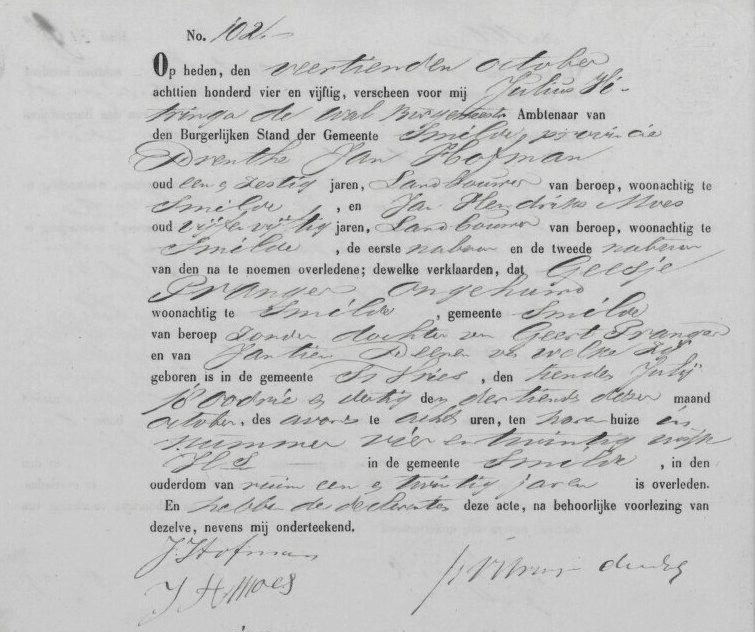 No. 102.
Op heden, den veertienden october
achttien honderd vier en vijftig, verscheen voor mij Julius Vi-
tringa de wal Burgemeester Ambtenaar van
den Burgerlijken Stand der Gemeente Smilde, provincie
Drenthe Jan Hofman
oud een & zestig jaren, Landbouwer van beroep, woonachtig te
Smilde , en Jan Hendriks Moes
oud vijf en vijftig jaren, Landbouwer van beroep, woonachtig te
Smilde , de eerste nabuur en de tweede nabuur
van den na te noemen overledene; dewelke verklaarden, dat Geesje
Pranger ongehuwd
woonachtig te Smilde , gemeente Smilde
van beroep zonder dochter van Geert Pranger
en van Jantien van welke zij
geboren is in de gemeente Vries , den tienden Julij
18 drie & dertig den dertiende dezer maand
october, des avonds te acht uren, ten haren huize in
nummer vier en twintig wijk
H S in de gemeente Smilde , in den
ouderdom van ruim een & twintig jaren is overleden.
En hebben de declaranten deze acte, na behoorlijke voorlezing van
dezelve, nevens mij onderteekend.
J. Hofman
J H Moes